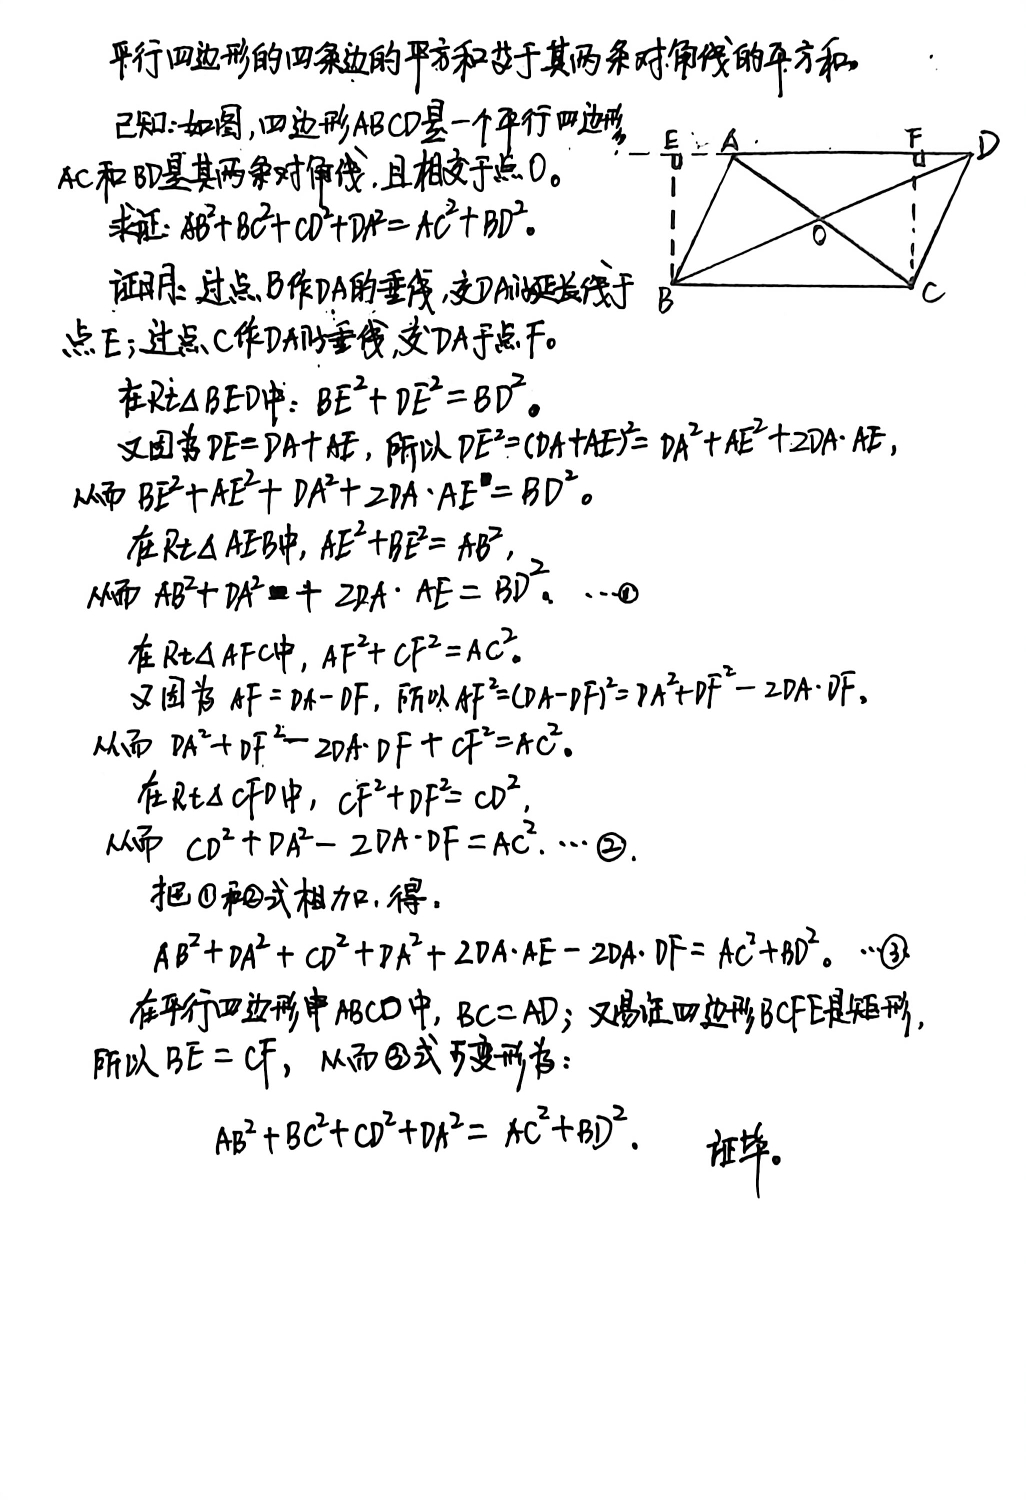 平行四边形的四条边的平方和等于其两条对角线的平方和。
已知:如图,四边形ABCD是一个平行四边形,
AC和BD是其两条对角线,且相交于点O。
求证:AB²+BC²+CD²+DA²=AC²+BD²。
证明:过点B作DA的垂线,交DA的延长线于
点E;过点C作DA的垂线,交DA于点F。
在Rt△BED中:BE²+DE²=BD²。
又因为DE=DA+AE,所以DE²=(DA+AE)²=DA²+AE²+2DA·AE,
从而 BE²+AE²+DA²+2DA·AE=BD²。
在Rt△AEB中,AE²+BE²=AB²,
从而 AB²+DA²+2DA·AE=BD²。…①
在Rt△AFC中,AF²+CF²=AC²。
又因为 AF=DA-DF,所以AF²=(DA-DF)²=DA²+DF²-2DA·DF,
从而 DA²+DF²-2DA·DF+CF²=AC²。
在Rt△CFD中,CF²+DF²=CD²,
从而 CD²+DA²-2DA·DF=AC².…②.
把①和②式相加,得.
AB²+DA²+CD²+DA²+2DA·AE-2DA·DF=AC²+BD²。…③
在平行四边形中ABCD中,BC=AD;又易证四边形BCFE是矩形,
所以BE=CF,从而③式可变形为:
AB²+BC²+CD²+DA²=AC²+BD². 证毕。
E A F D
O
B C